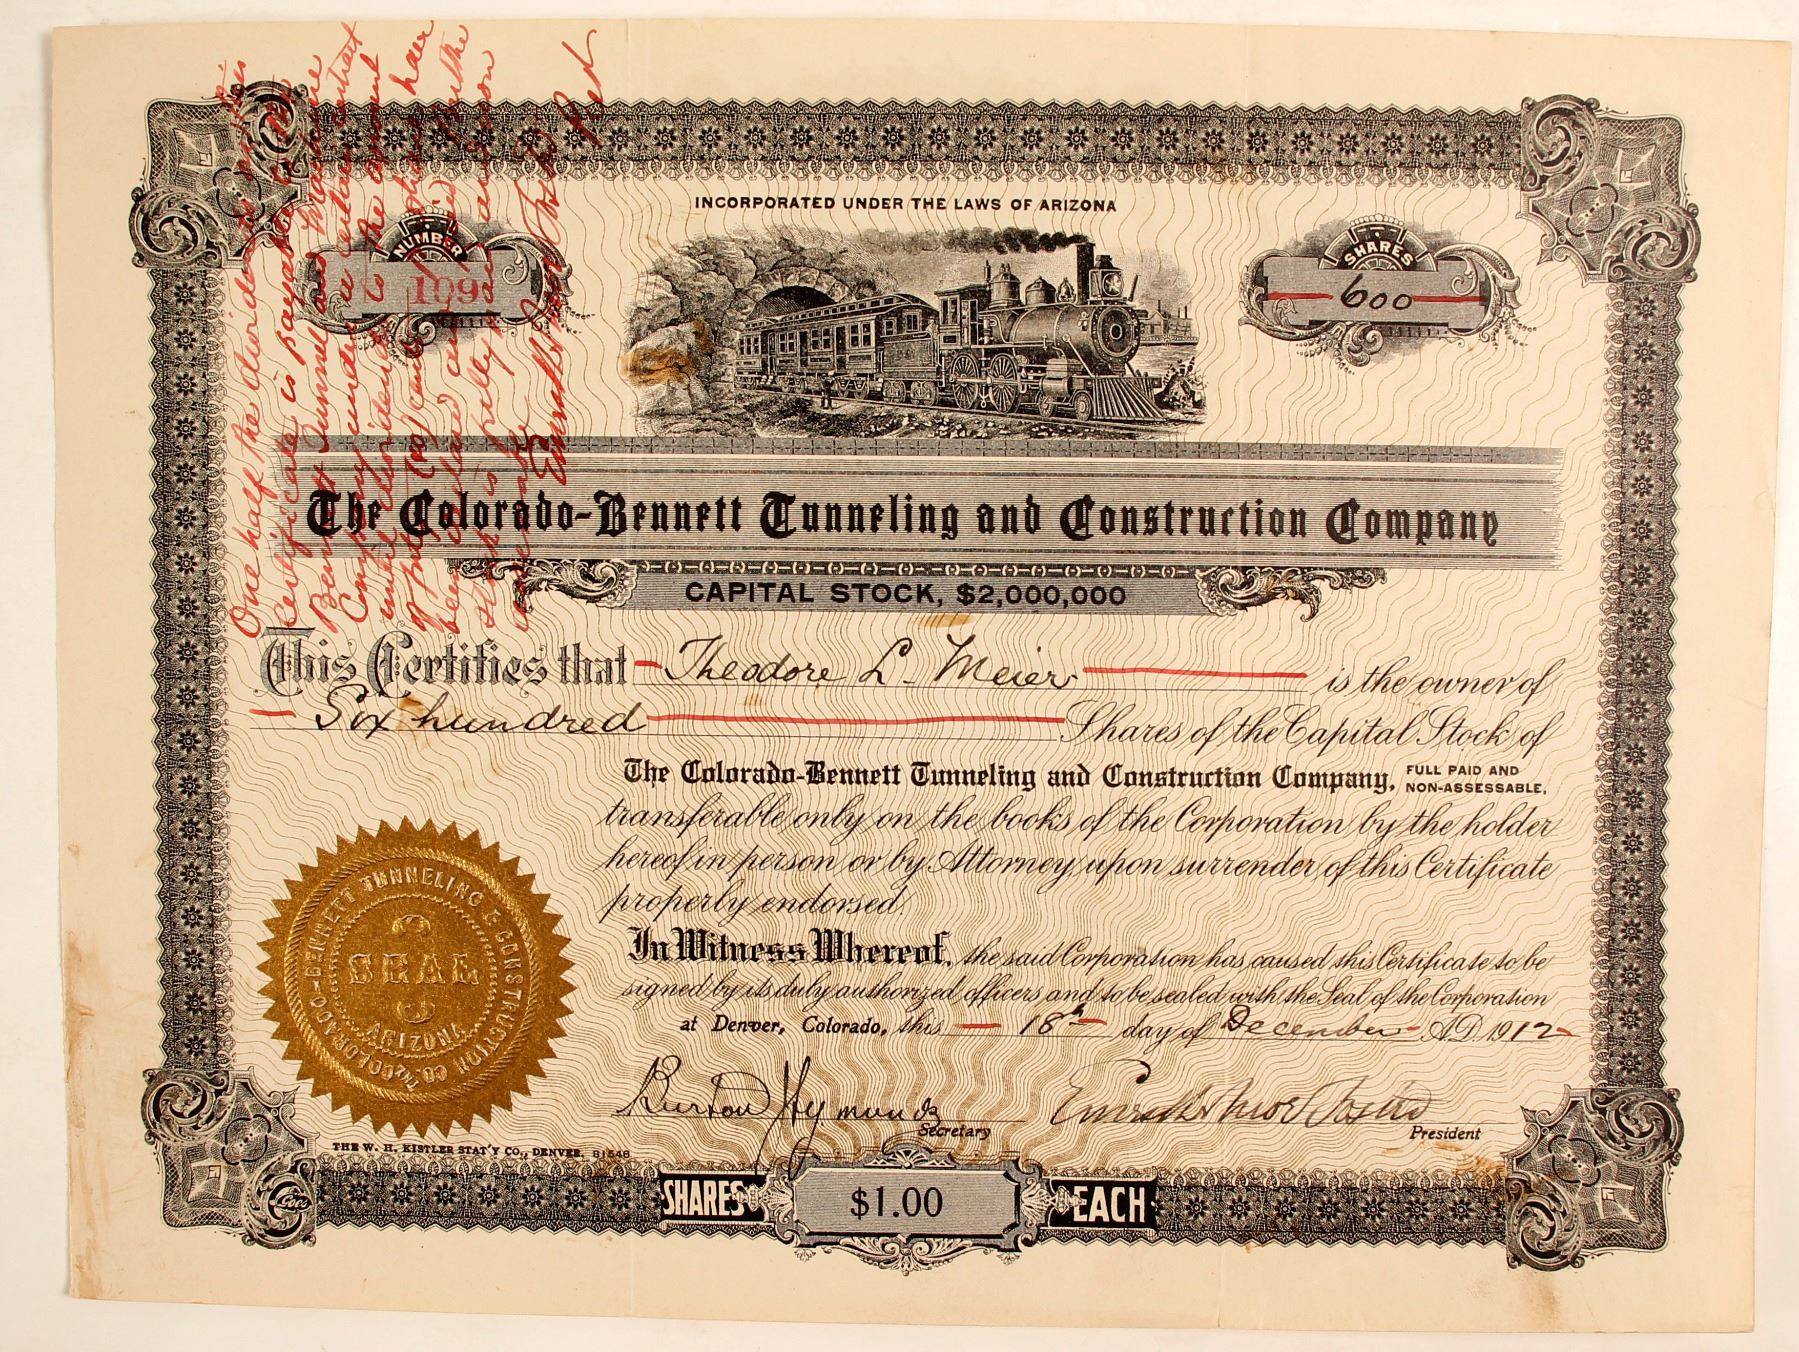 One half the dividend on this
Certificate is payable to the
Bennett Tunnel and Machine
Company under a certain contract
until dividends to the amount
of
been
stock is fully paid and non
assessable
Prest
INCORPORATED UNDER THE LAWS OF ARIZONA
NUMBER
SHARES
600
The Colorado-Bennett Tunneling and Construction Company
CAPITAL STOCK, $2,000,000
This Certifies that Theodore L. Meier is the owner of
Six hundred Shares of the Capital Stock of
The Colorado-Bennett Tunneling and Construction Company, FULL PAID AND NON-ASSESSABLE,
transferable only on the books of the Corporation by the holder
hereof in person or by Attorney upon surrender of this Certificate
properly endorsed
In Witness Whereof, the said Corporation has caused this Certificate to be
signed by its duly authorized officers and to be sealed with the Seal of the Corporation
at Denver, Colorado, this 18th day of December A.D. 1912
THE COLORADO-BENNETT TUNNELING & CONSTRUCTION CO.
SEAL
ARIZONA
Burton Hymunds
Secretary
President
THE W. H. KISTLER STAT'Y CO., DENVER. 81548
SHARES $1.00 EACH